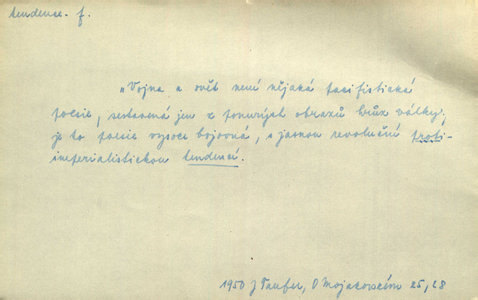 tendence. f.
„Vojna a svět není nějaká pacifistická
poesie, sestavená jen z ponurých obrazů hrůz války;
je to poesie vysoce bojovná, s jasnou revoluční proti-
imperialistickou tendencí.
1950 J Taufer, O Majakovském 25, 28